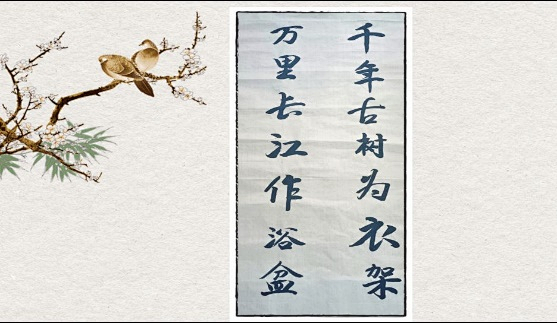 千年古树为衣架
万里长江作浴盆